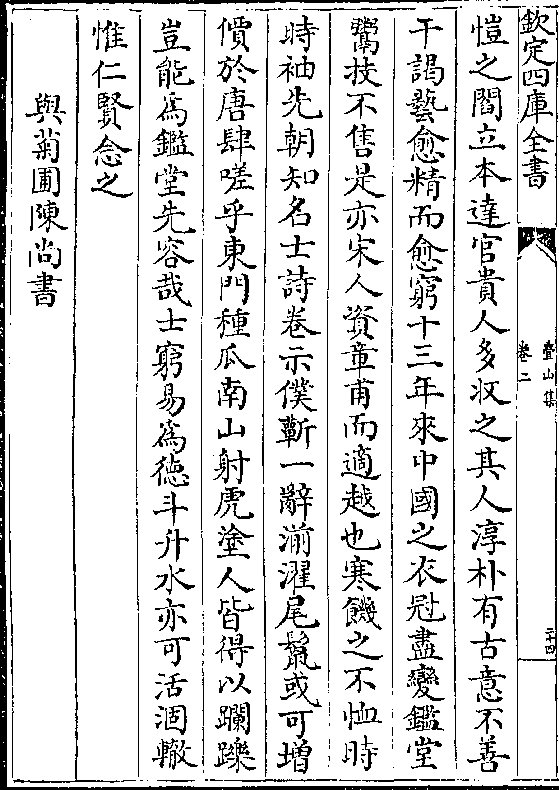 欽定四庫全書
疊山集
卷二
二十四
愷之閻立本達官貴人多収之其人淳朴有古意不善
干謁藝愈精而愈窮十三年來中國之衣冠盡變鑑堂
鬻技不售是亦宋人資章甫而適越也寒饑之不恤時
時袖先朝知名士詩卷示僕蘄一辭湔濯尾鬛或可增
價於唐肆嗟乎東門種瓜南山射虎塗人皆得以躪躒
豈能為鑑堂先容哉士窮易為徳斗升水亦可活涸轍
惟仁賢念之
與菊圃陳尚書